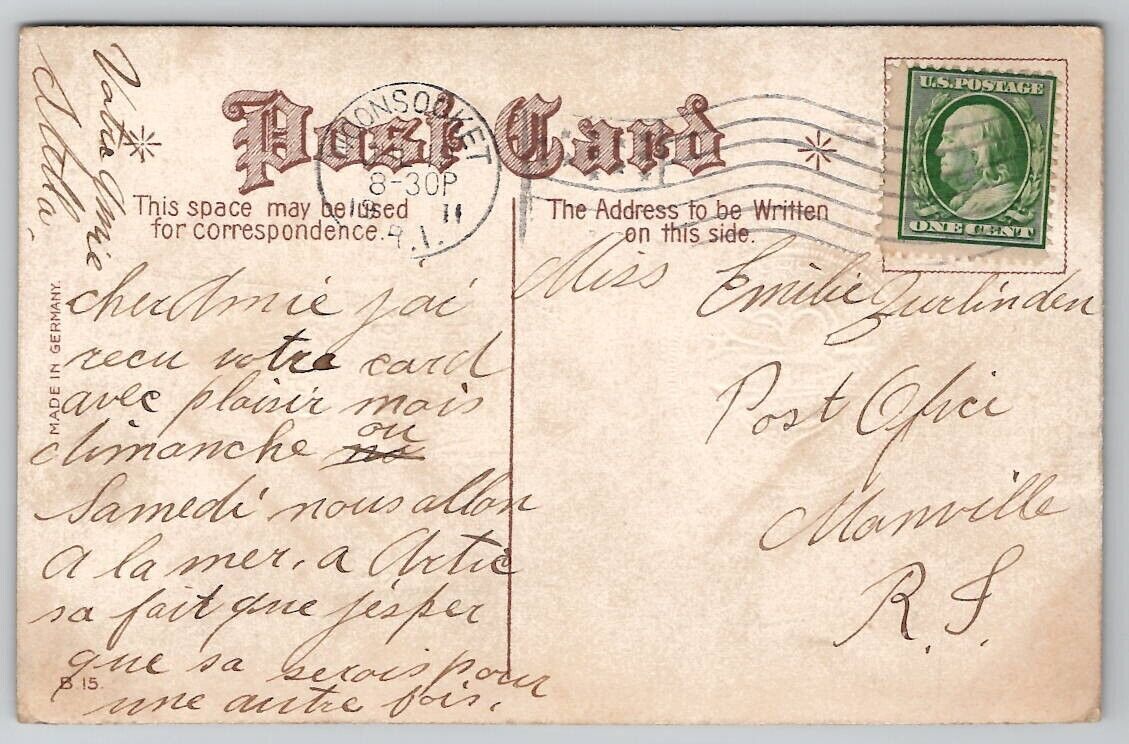 Post Card
This space may be used
for correspondence.
The Address to be Written
on this side.
WOONSOCKET
8-30P
11
R.I.
U.S. POSTAGE
ONE CENT
MADE IN GERMANY.
cher Amie j'ai
recu votre card
avec plaisir mais
dimanche no ou
Samedi nous allon
A la mer, a Artic
sa fait que j'esper
que sa serois pour
une autre fois.
Votre Amie
B 15.
Miss Emilie Zurlinden
Post Ofice
Manville
R. I.